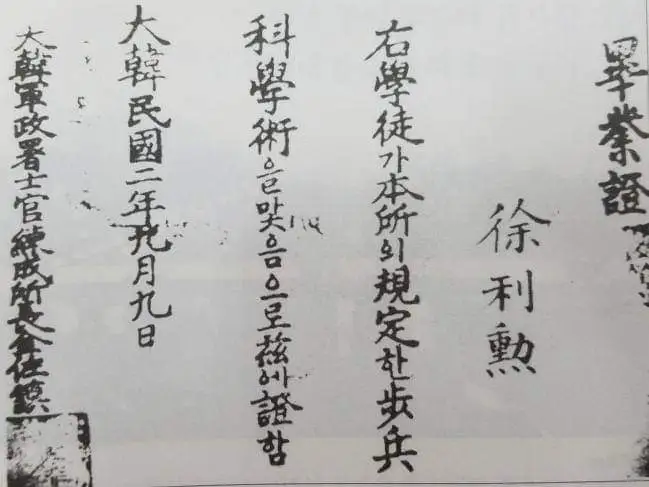 畢業證
徐利勳
右學徒가本所의規定한步兵
科學術을맞음으로玆에證함
大韓民國二年九月九日
大韓軍政署士官練成所長金佐鎭